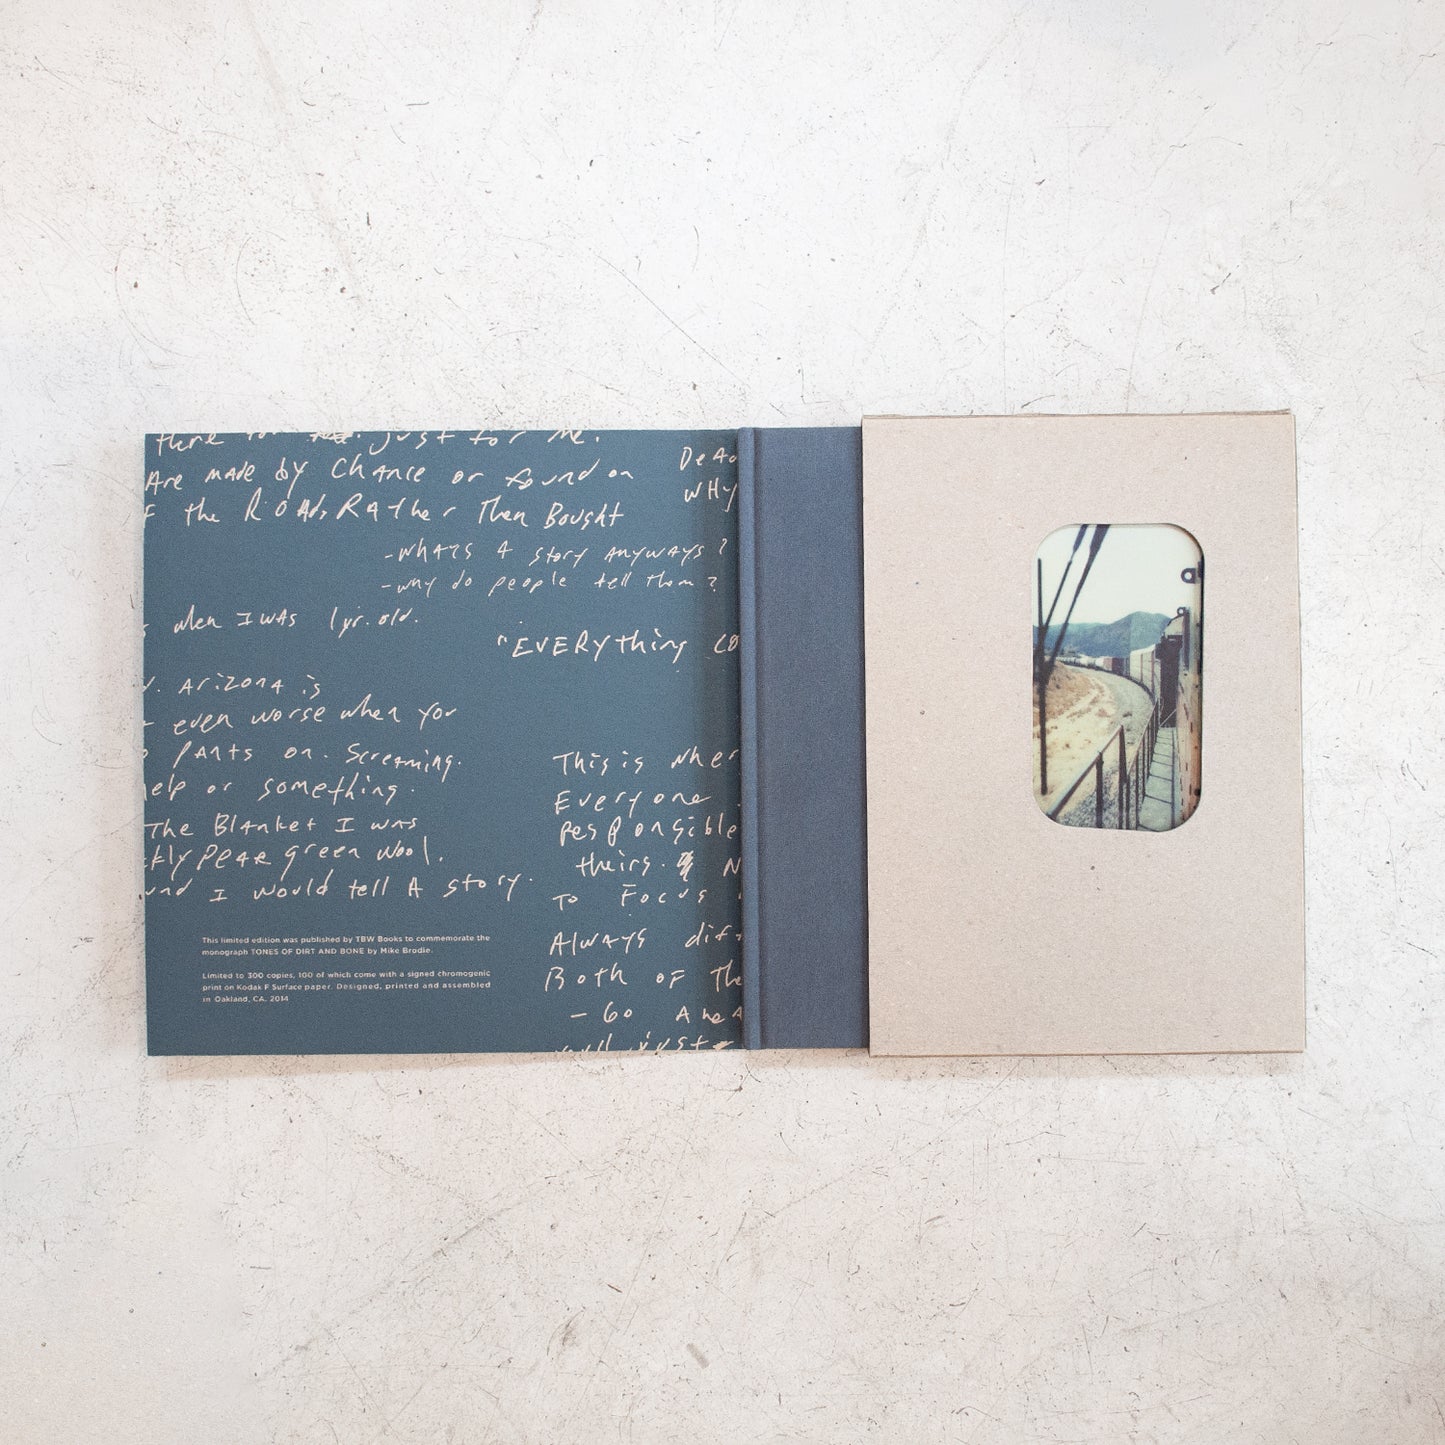 just for me.
Are made by Chance or found on
the Roads Rather Then Bought
Dead
WHY
-whats A story anyways?
-why do people tell them?
when I was 1 yr. old.
"EVERything
Arizona is
even worse when you
Pants on. Screaming.
help or something.
The Blanket I was
Pear green wool.
and I would tell A story.
This is wher
Everyone
Responsible
theirs. N
To Focus
Always diff
Both of The
- 60
just
This limited edition was published by TBW Books to commemorate the
monograph TONES OF DIRT AND BONE by Mike Brodie.
Limited to 300 copies, 100 of which come with a signed chromogenic
print on Kodak F Surface paper. Designed, printed and assembled
in Oakland, CA. 2014